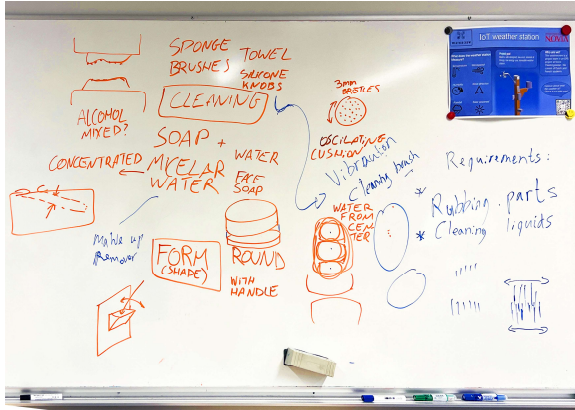 SPONGE
BRUSHES
TOWEL
SILICONE
KNOBS
CLEANING
ALCOHOL
MIXED?
SOAP +
MYCELAR
WATER
CONCENTRATED
WATER
FACE
SOAP
Make up
Remover
FORM
(SHADE)
ROUND
WITH
HANDLE
3mm
BRETLES
OSCILATING
CUSHION
Vibrautiion
Cleaning brush
WATER
FROM
CEN
TER
Requirements:
* Rubbing parts
* Cleaning liquids
IoT weather station
NOVIA